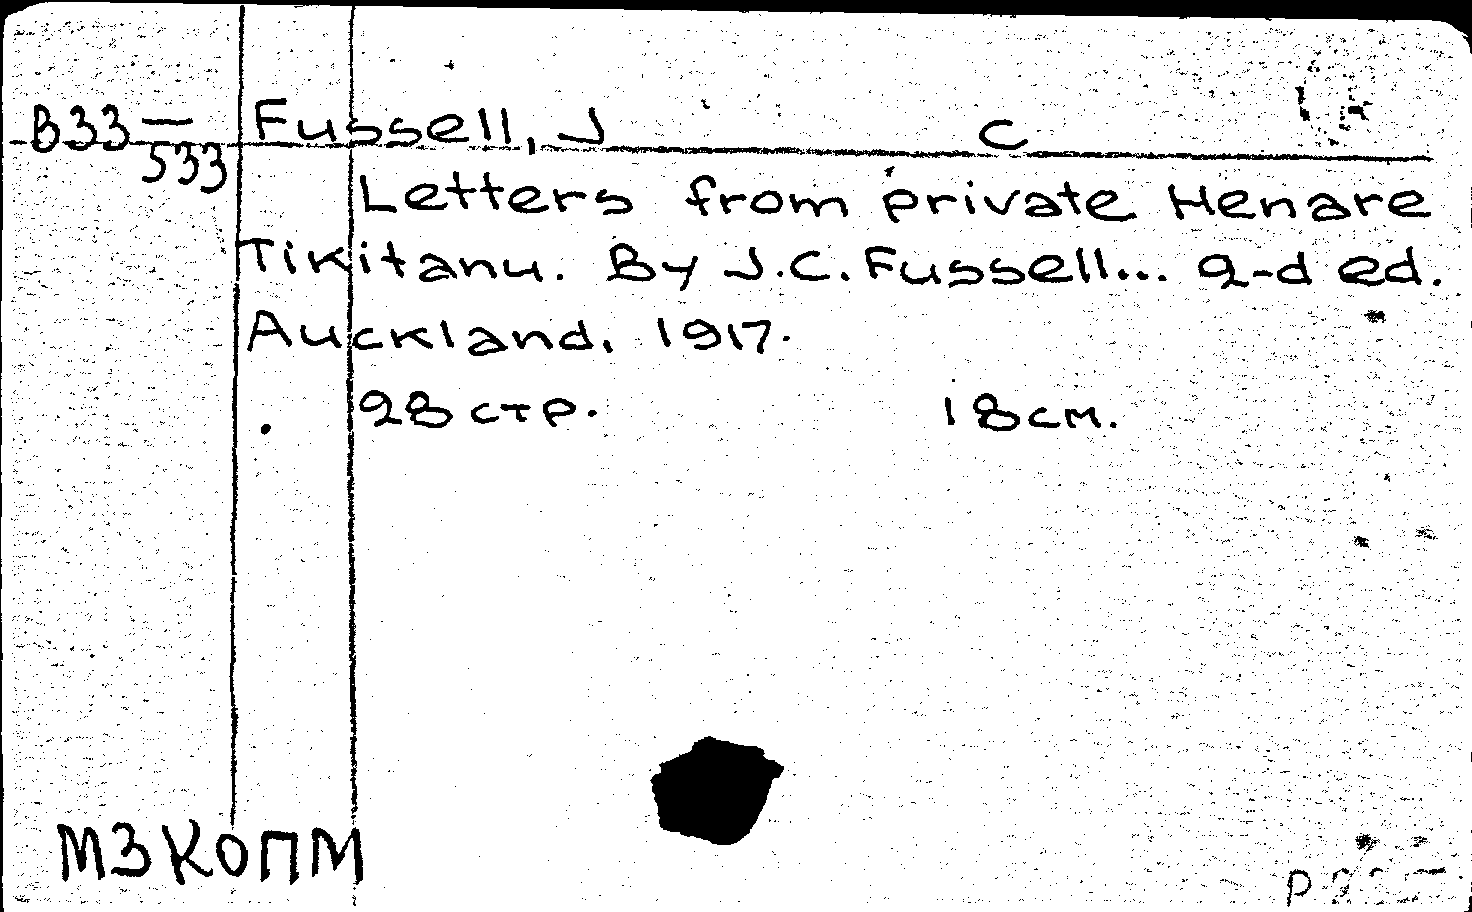 B33— Fussell, J C
533
Letters from private Henare
Tikitanu. By J.C. Fussell... 2-d ed.
Auckland, 1917.
28 стр. 18 см.
МЗ КОПМ